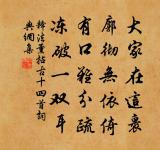 大家在這裏
廓徹無依倚
有口難分疏
凍破一双耳
釋法薰拈古十四首詞
典網集